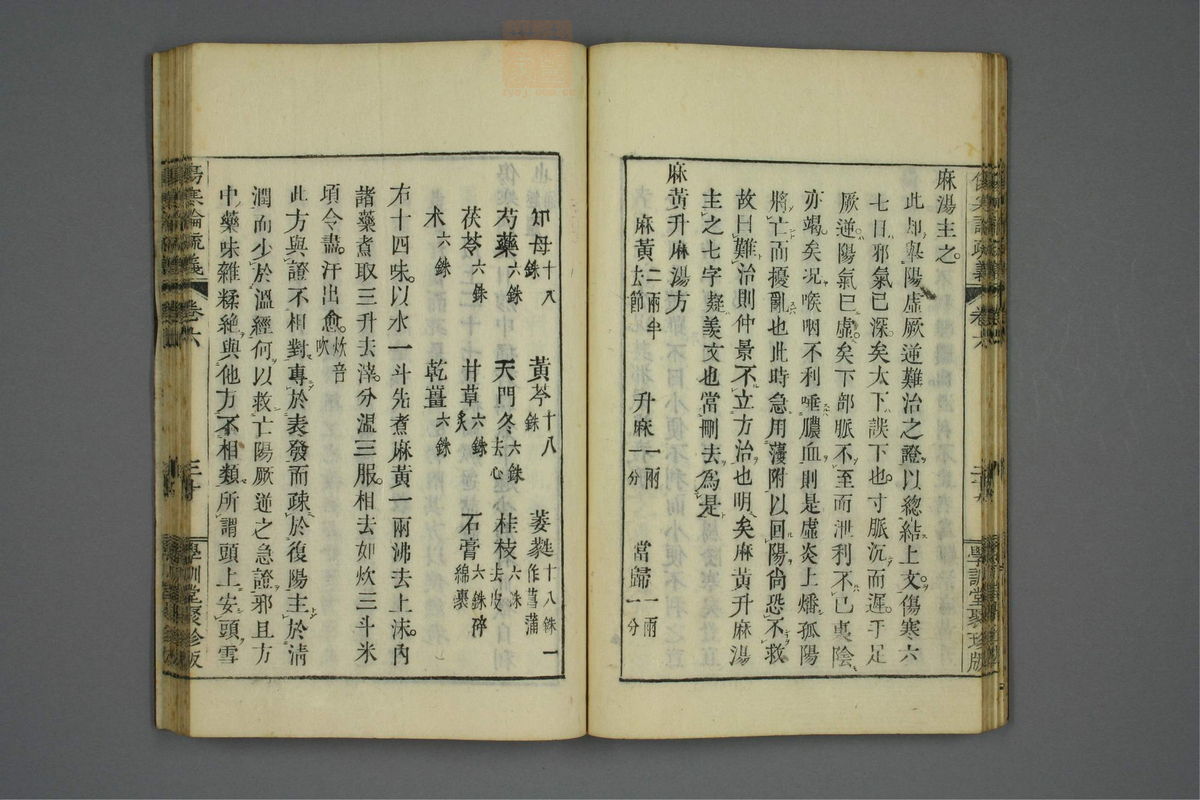 麻湯主之。
此却擧陽虛厥逆難治之證以總結上文。傷寒六
七日邪氣已深矣大下誤下也。寸脈沉而遲。手足
厥逆陽氣已虛矣下部脈不至而泄利不已裏陰
亦竭矣況喉咽不利唾膿血則是虛炎上燔孤陽
將亡而擾亂也此時急用薑附以回陽尙恐不救
故曰難治則仲景不立方治也明矣麻黃升麻湯
主之七字疑羨文也當刪去爲是
麻黃升麻湯方
麻黃二兩半去節 升麻一兩一分 當歸一兩一分
知母十八銖 黃芩十八銖 萎蕤十八銖一作菖蒲
芍藥六銖 天門冬六銖去心 桂枝六銖去皮
茯苓六銖 甘草六銖炙 石膏六銖碎綿裹
朮六銖 乾薑六銖
右十四味。以水一斗先煮麻黃一兩沸去上沫。內
諸藥煮取三升去滓。分溫三服。相去如炊三斗米
頃令盡。汗出愈。炊音吹
此方與證不相對專於表發而疎於復陽主於淸
潤而少於溫經何以救亡陽厥逆之急證邪且方
中藥味雜糅絶與他方不相類所謂頭上安頭雪
傷寒論疏義 卷六 學訓堂聚珍版